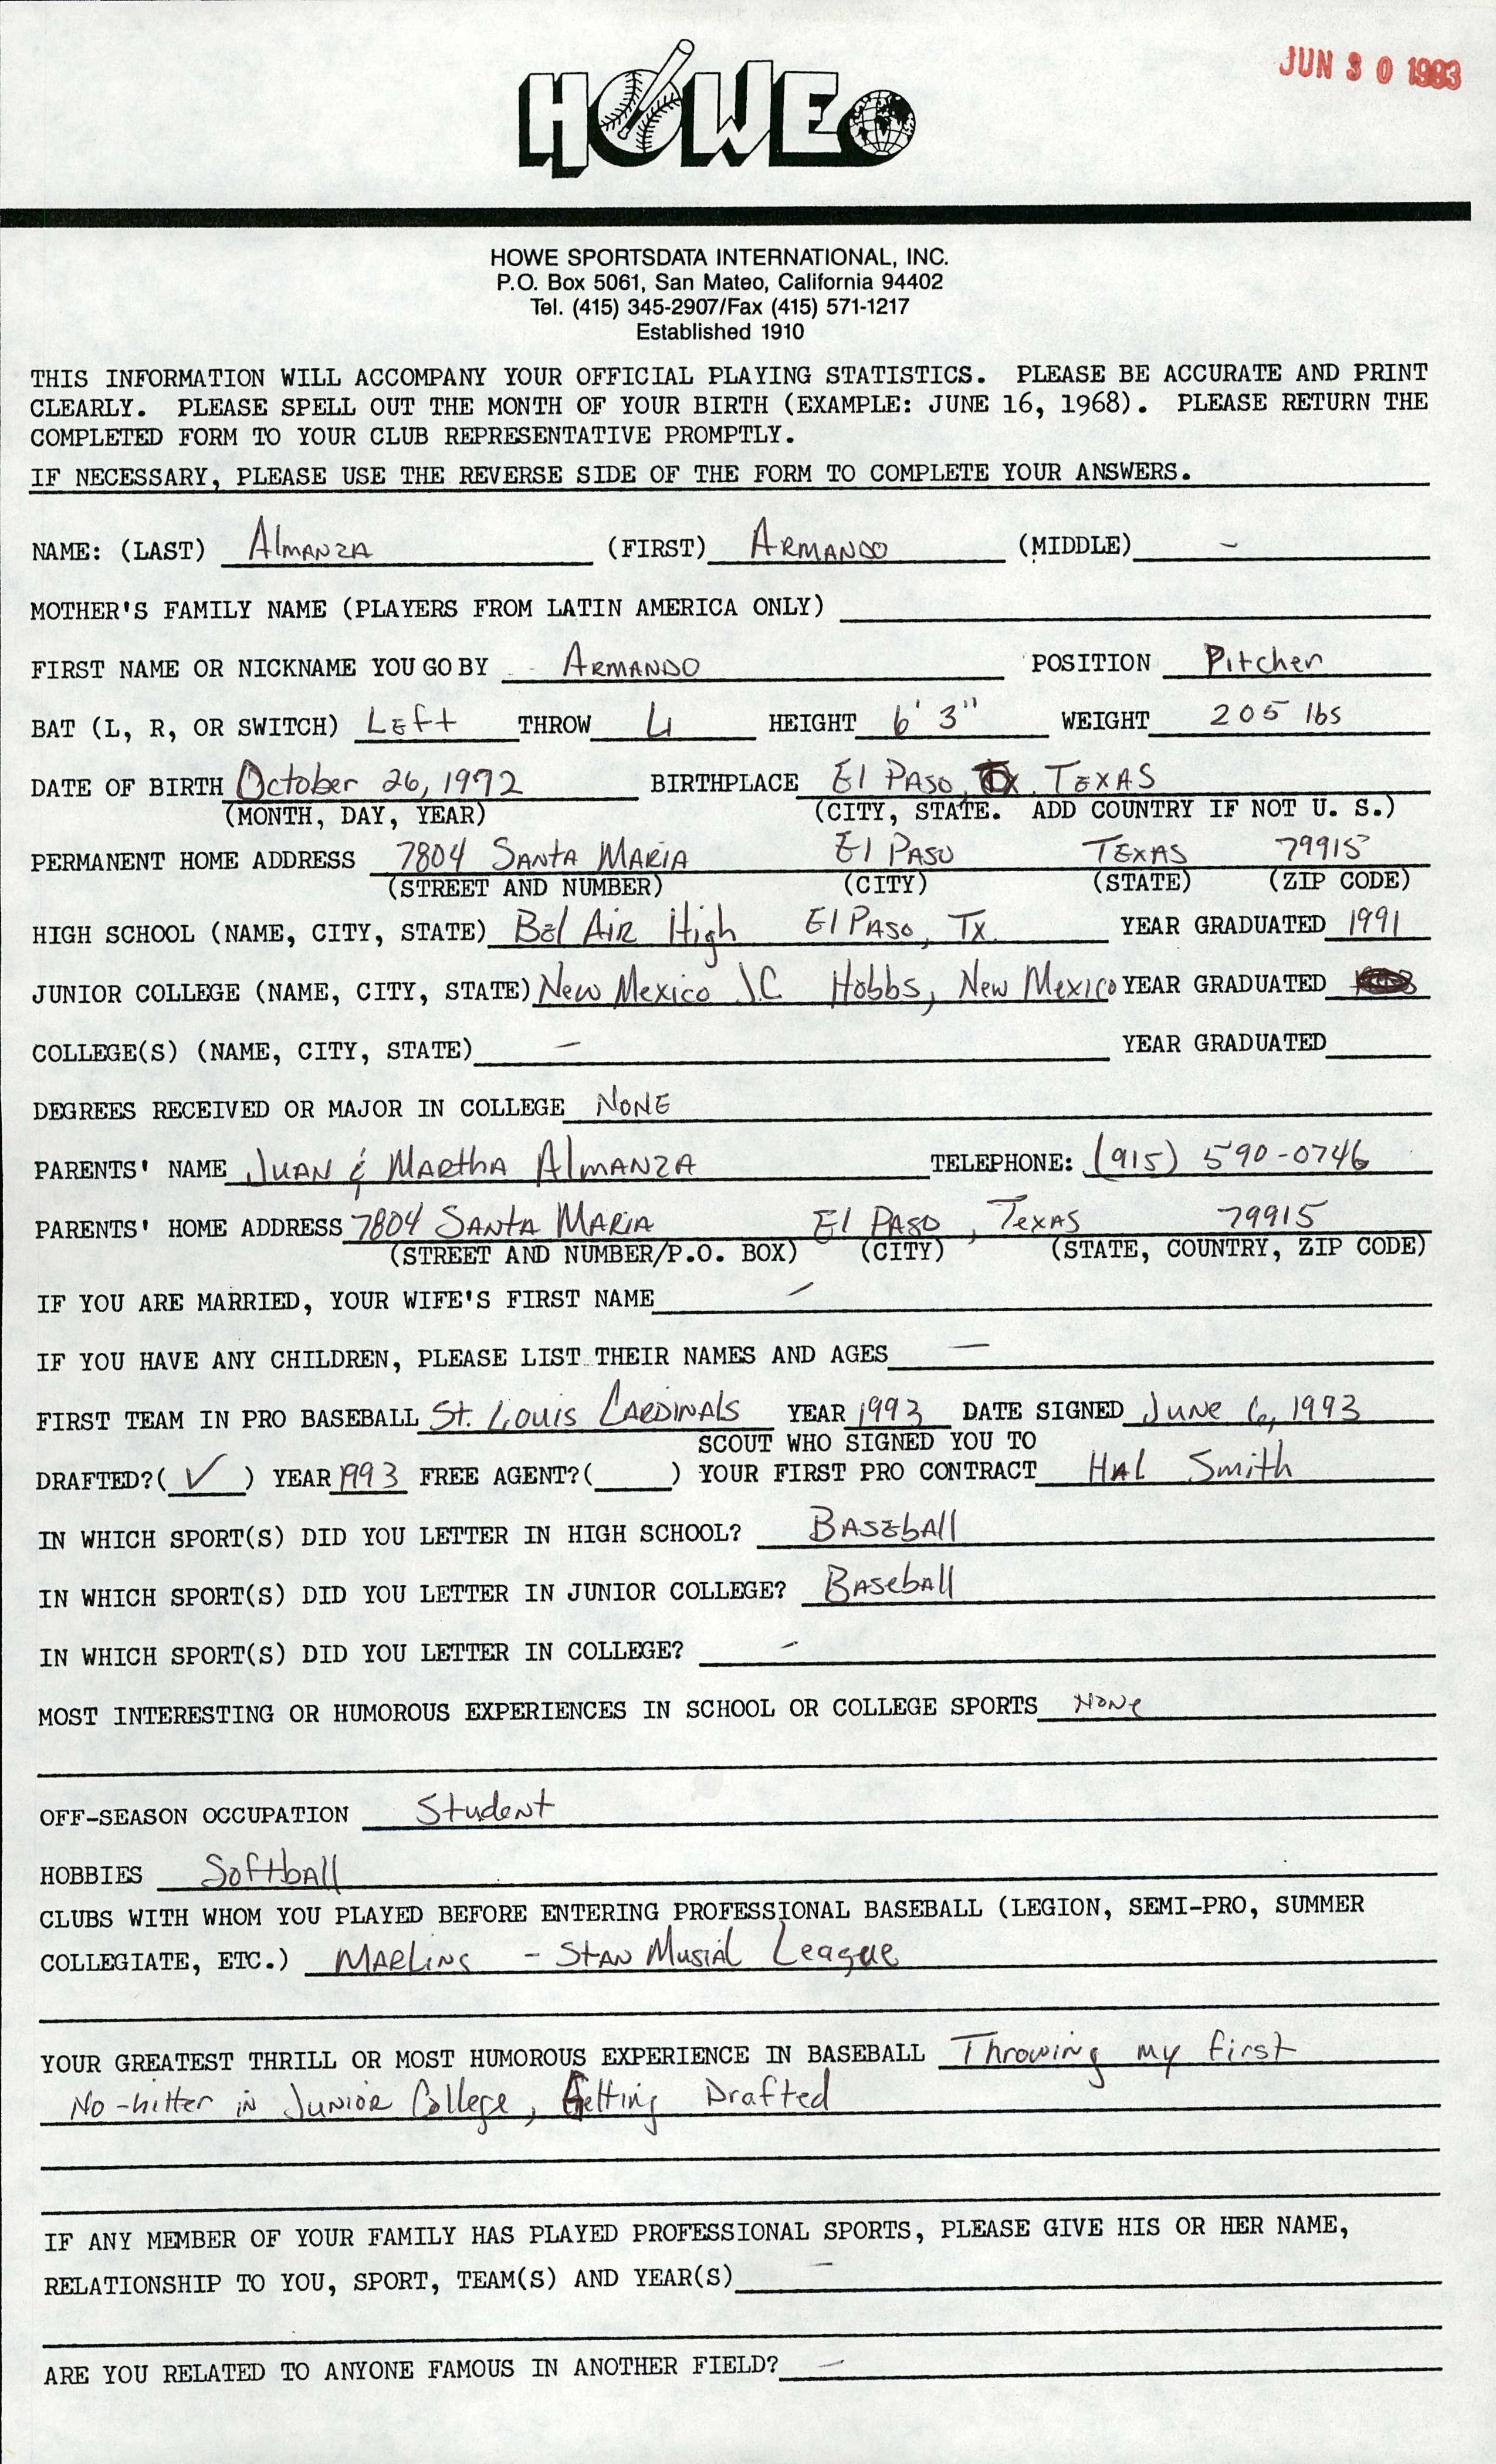 JUN 30 1993
HOWE
HOWE SPORTSDATA INTERNATIONAL, INC.
P.O. Box 5061, San Mateo, California 94402
Tel. (415) 345-2907/Fax (415) 571-1217
Established 1910
THIS INFORMATION WILL ACCOMPANY YOUR OFFICIAL PLAYING STATISTICS. PLEASE BE ACCURATE AND PRINT
CLEARLY. PLEASE SPELL OUT THE MONTH OF YOUR BIRTH (EXAMPLE: JUNE 16, 1968). PLEASE RETURN THE
COMPLETED FORM TO YOUR CLUB REPRESENTATIVE PROMPTLY.
IF NECESSARY, PLEASE USE THE REVERSE SIDE OF THE FORM TO COMPLETE YOUR ANSWERS.
NAME: (LAST) Almanza (FIRST) Armando (MIDDLE) -
MOTHER'S FAMILY NAME (PLAYERS FROM LATIN AMERICA ONLY)
FIRST NAME OR NICKNAME YOU GO BY Armando POSITION Pitcher
BAT (L, R, OR SWITCH) Left THROW L HEIGHT 6' 3" WEIGHT 205 lbs
DATE OF BIRTH October 26, 1972 BIRTHPLACE El Paso, Texas
(MONTH, DAY, YEAR) (CITY, STATE. ADD COUNTRY IF NOT U. S.)
PERMANENT HOME ADDRESS 7804 Santa Maria El Paso Texas 79915
(STREET AND NUMBER) (CITY) (STATE) (ZIP CODE)
HIGH SCHOOL (NAME, CITY, STATE) Bel Air High El Paso, Tx. YEAR GRADUATED 1991
JUNIOR COLLEGE (NAME, CITY, STATE) New Mexico J.C Hobbs, New Mexico YEAR GRADUATED
COLLEGE(S) (NAME, CITY, STATE) - YEAR GRADUATED
DEGREES RECEIVED OR MAJOR IN COLLEGE None
PARENTS' NAME Juan & Martha Almanza TELEPHONE: (915) 590-0746
PARENTS' HOME ADDRESS 7804 Santa Maria El Paso, Texas 79915
(STREET AND NUMBER/P.O. BOX) (CITY) (STATE, COUNTRY, ZIP CODE)
IF YOU ARE MARRIED, YOUR WIFE'S FIRST NAME -
IF YOU HAVE ANY CHILDREN, PLEASE LIST THEIR NAMES AND AGES -
FIRST TEAM IN PRO BASEBALL St. Louis Cardinals YEAR 1993 DATE SIGNED June 6, 1993
SCOUT WHO SIGNED YOU TO
DRAFTED?( ✓ ) YEAR 1993 FREE AGENT?( ) YOUR FIRST PRO CONTRACT Hal Smith
IN WHICH SPORT(S) DID YOU LETTER IN HIGH SCHOOL? Baseball
IN WHICH SPORT(S) DID YOU LETTER IN JUNIOR COLLEGE? Baseball
IN WHICH SPORT(S) DID YOU LETTER IN COLLEGE? -
MOST INTERESTING OR HUMOROUS EXPERIENCES IN SCHOOL OR COLLEGE SPORTS None
OFF-SEASON OCCUPATION Student
HOBBIES Softball
CLUBS WITH WHOM YOU PLAYED BEFORE ENTERING PROFESSIONAL BASEBALL (LEGION, SEMI-PRO, SUMMER
COLLEGIATE, ETC.) Marlins - Stan Musial League
YOUR GREATEST THRILL OR MOST HUMOROUS EXPERIENCE IN BASEBALL Throwing my first
No-hitter in Junior College, Getting Drafted
IF ANY MEMBER OF YOUR FAMILY HAS PLAYED PROFESSIONAL SPORTS, PLEASE GIVE HIS OR HER NAME,
RELATIONSHIP TO YOU, SPORT, TEAM(S) AND YEAR(S) -
ARE YOU RELATED TO ANYONE FAMOUS IN ANOTHER FIELD? -